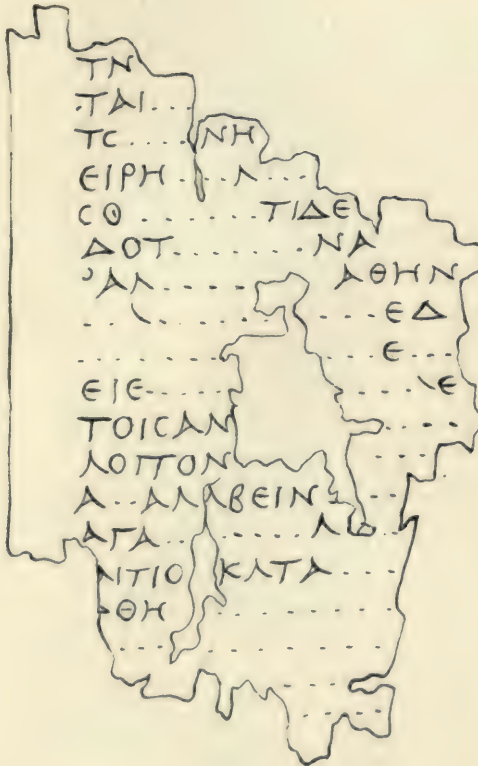 ΤΝ
.ΤΑΙ....
ΤC.....ΝΗ
ΕΙΡΗ......Λ.....
CΘ.......ΤΙΔΕ
ΔΟΤ.........ΝΑ
ΑΛ.......ΑΘΗΝ
ΕΔ
Ε
ΕΙΕ.......Ε
ΤΟΙCΑΝ
ΛΟΙΠΟΝ
Α..ΑΛΛΒΕΙΝ
ΑΓΑ.......Λ
ΛΙΤΙΟ ΚΑΤΑ
ΘΗ